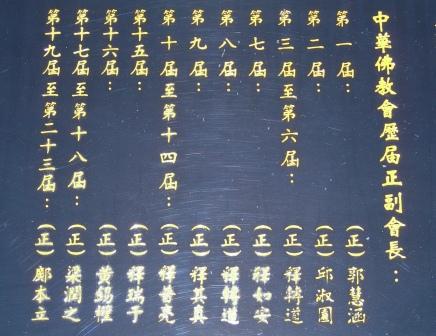 中華佛教會歷届正副會長：
第一届：（正）郭慧涵
第二届：（正）邱淑園
第三届至第六届：（正）釋轉道
第七届：（正）釋如安
第八届：（正）釋轉道
第九届：（正）釋其真
第十届至第十四届：（正）釋普亮
第十五届：（正）釋瑞于
第十六届：（正）黄錫權
第十七届至第十八届：（正）梁潤之
第十九届至第二十三届：（正）鄺本立